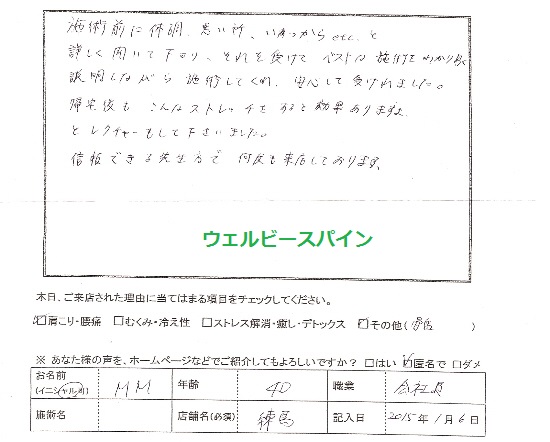 施術前に体調、悪い所、いつからetc.と
詳しく聞いて下さり、それを受けてベストな施術をわかり易く
説明しながら施術してくれ、安心して受けれました。
帰宅後も こんなストレッチをすると効果ありますよ
とレクチャーもして下さいました。
信頼できる先生方で 何度も来店しております。
ウェルビースパイン
本日、ご来店された理由に当てはまる項目をチェックしてください。
☑肩こり・腰痛 □むくみ・冷え性 □ストレス解消・癒し・デトックス ☑その他( )
※ あなた様の声を、ホームページなどでご紹介してもよろしいですか? □はい ☑匿名で □ダメ
お名前 (イニシャル可) MM 年齢 40 職業 会社員
施術名 店舗名(必須) 練馬 記入日 2015年1月6日